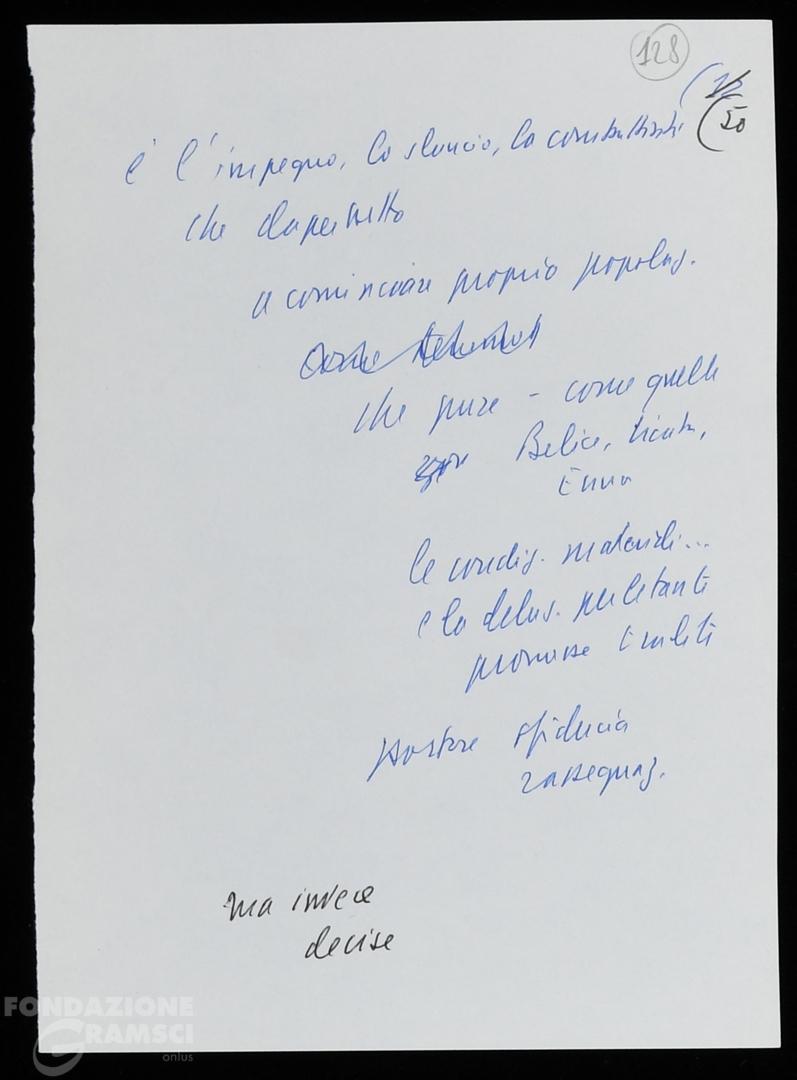 128
50
è l'impegno, lo slancio, la combattività
che dapertutto
a cominciare proprio popolaz.
che pure - come quelle
Belice, Licata,
Enna
le condiz. materiali...
e la delus. per le tante
promesse tradite
portare sfiducia
rassegnaz.
ma invece
decise
FONDAZIONE
GRAMSCI
onlus